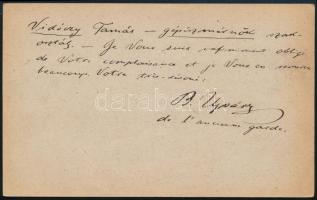 Vidéczy Tamás – gépészmérnök szad-
ország. – Je Vous suis infiniment obligé
de Votre complaisance et je Vous en remercie
beaucoup. Votre très-dévoué:
B.
de l'ancienne garde.
darabanth